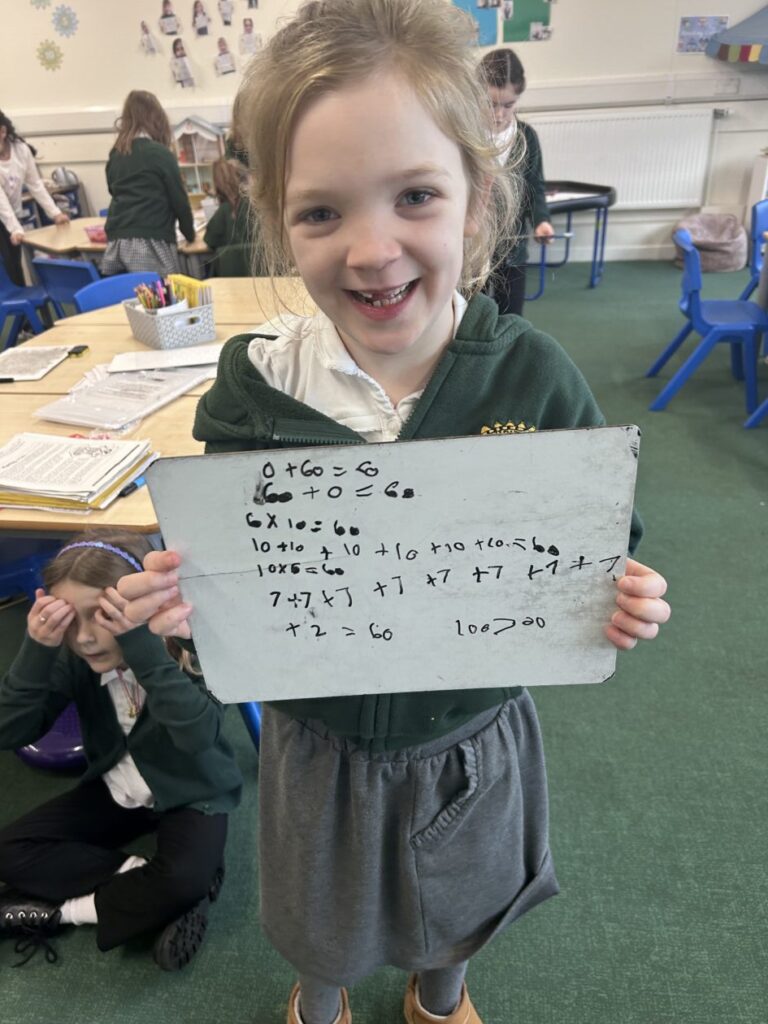 0 + 60 = 60
60 + 0 = 60
6 x 10 = 60
10 + 10 + 10 + 10 + 10 + 10 = 60
10 x 6 = 60
7 + 7 + 7 + 7 + 7 + 7 + 7 + 7
+ 2 = 60 100 >